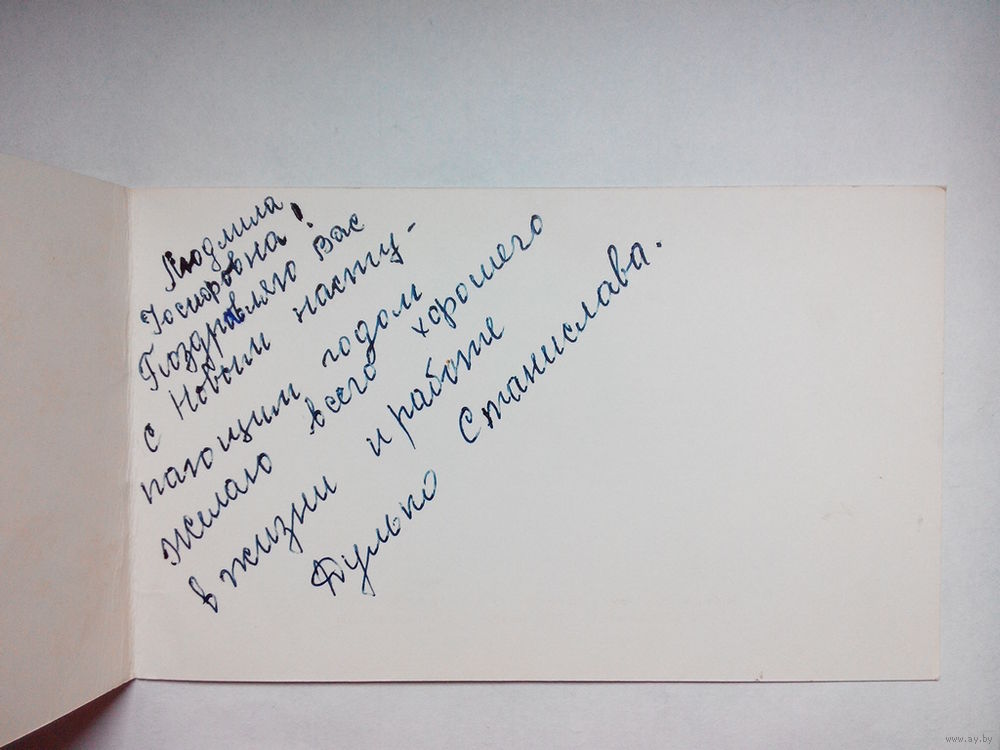 Людмила
Иосифовна!
Поздравляю Вас
с Новым насту-
пающим годом
желаю всего хорошего
в жизни и работе
Дулько Станислава.
www.ay.by